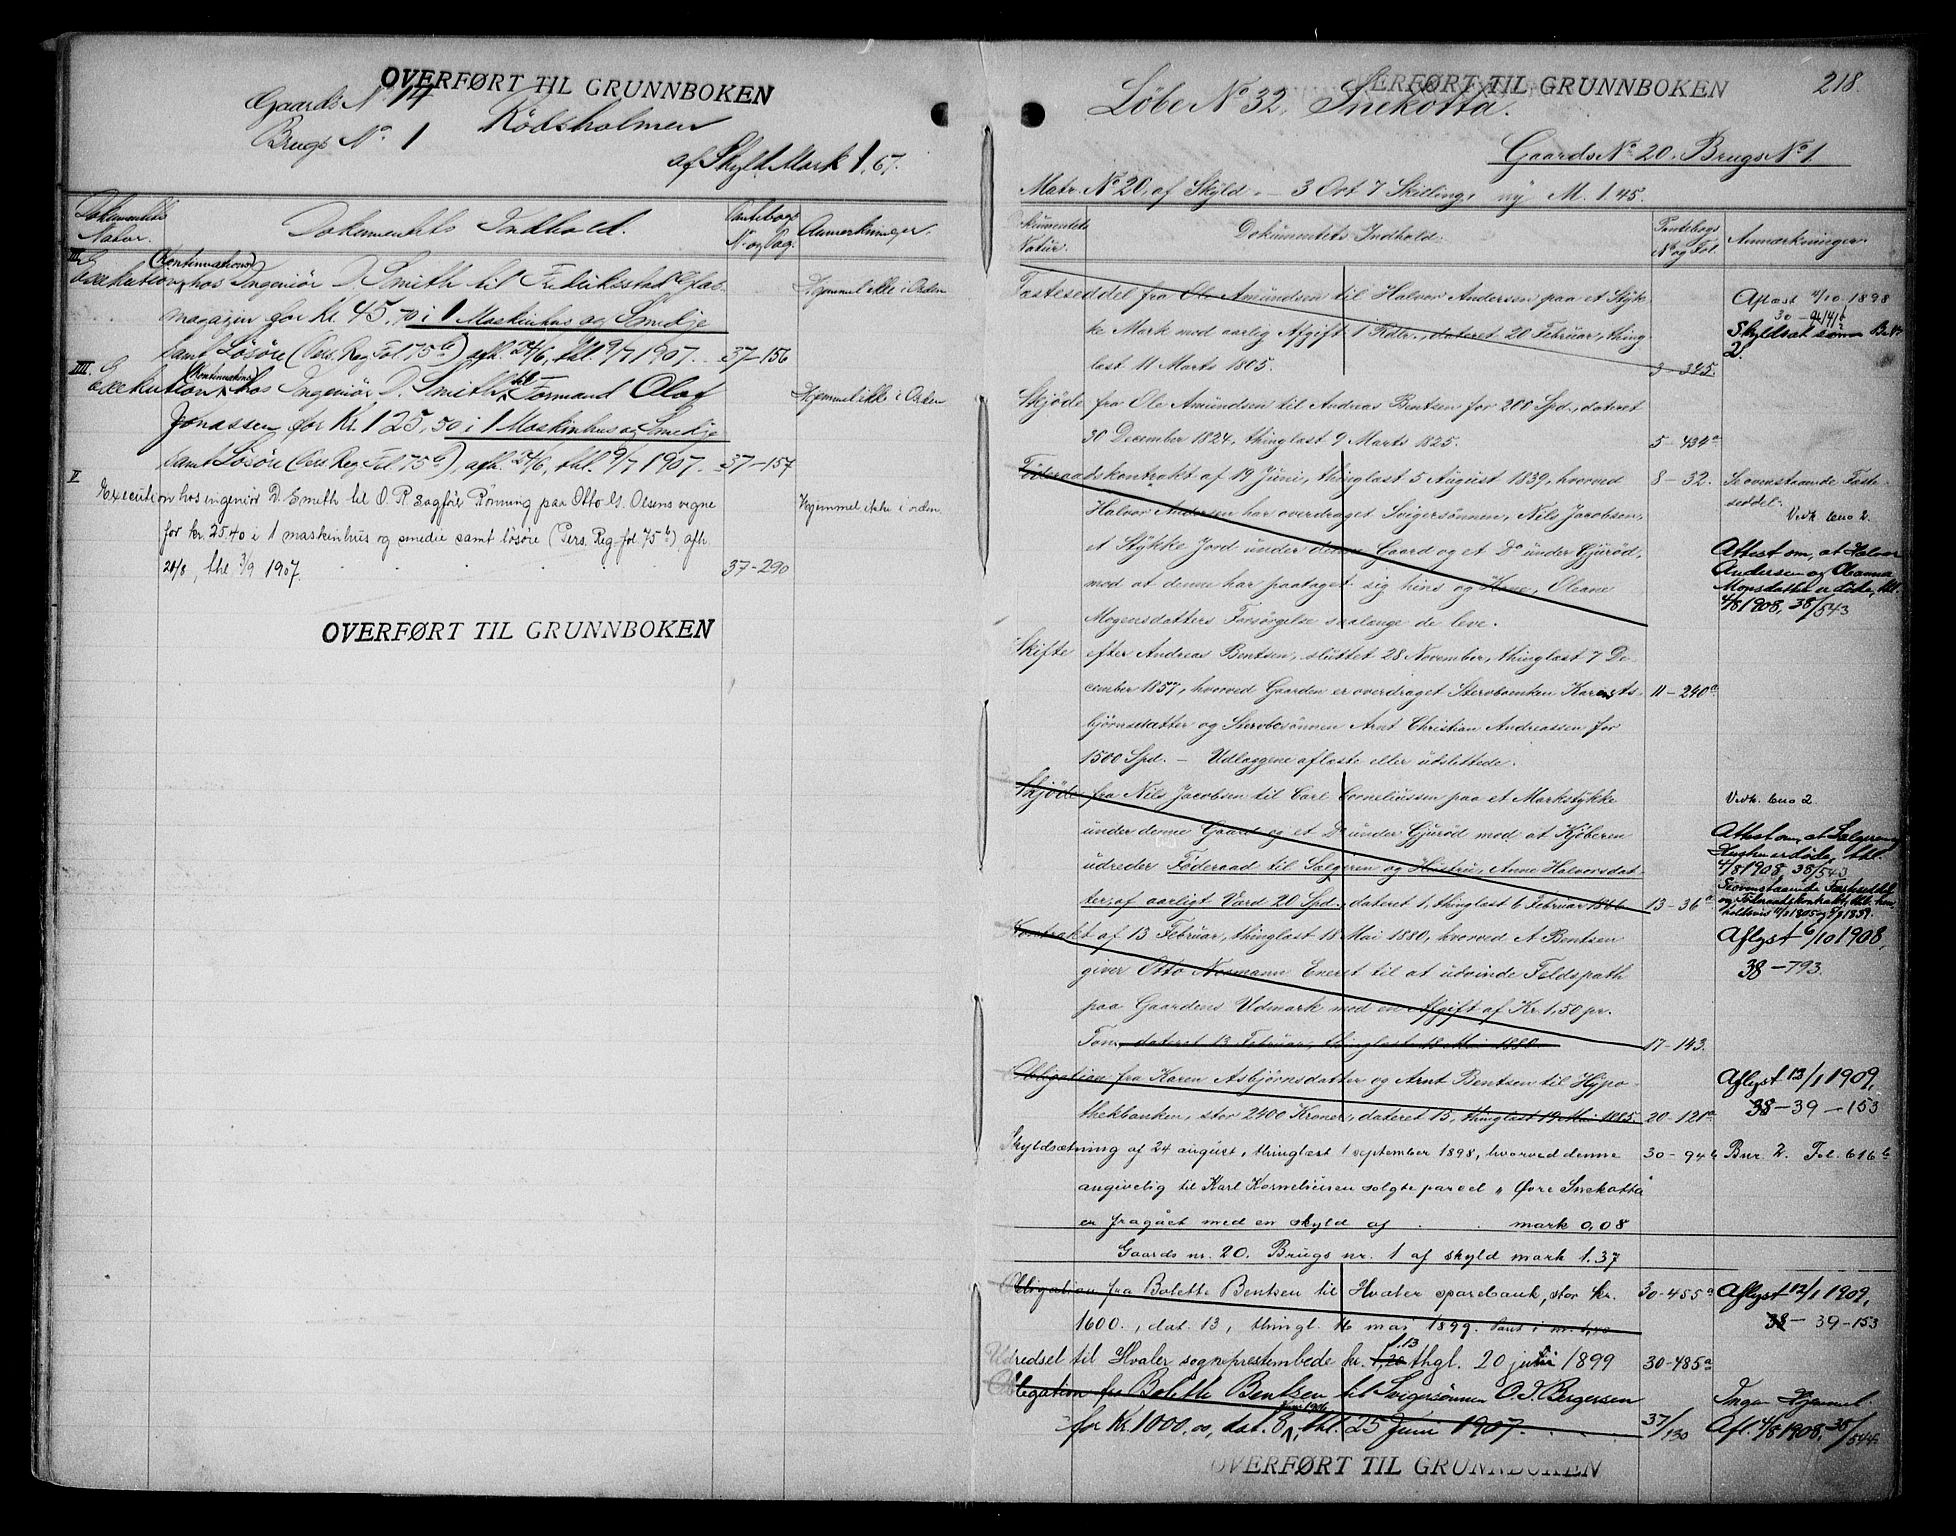 OVERFØRT TIL GRUNNBOKEN
Gaards No 14
Rødsholmen
Brugs No. 1
af Skyld Mark 1,67.
Dokumentets Natur.
Dokumentets Indhold.
Pantebogs No og Pag.
Anmerkninger.
III
Execution (Kontinuations) hos Ingeniør D. Smith til Fredriksstad Glas-
magazin for Kr. 45,70 i 1 Maskinhus og Smedje
samt Løsøre (Pers. Reg. Fol 75b) afh. 24/6, thl. 9/7 1907. 37-156
Hjemmel ikke i Orden
IIII
Execution (Kontinuations) hos Ingeniør D. Smith til Formand Olaf
Jonassen for Kr. 125,50 i 1 Maskinhus og Smedje
samt Løsøre (Pers. Reg. Fol 75b), afh. 24/6, thl. 9/7 1907. 37-157
Hjemmel ikke i Orden
V
Execution hos ingeniør D. Smith til O. R. sagfører Rønning paa Otto G. Olsens vegne
for kr. 25.40 i 1 maskinhus og smedie samt løsøre (Pers. Reg. fol 75b) afh.
21/8, thl 3/9 1907. 37-290
Hjemmel ikke i orden
OVERFØRT TIL GRUNNBOKEN
OVERFØRT TIL GRUNNBOKEN
218
Løbe No 32. Snekotta.
Gaards No. 20. Brugs No 1
Matr. No 20, af Skyld - 3 Ort 7 Skilling, ny M. 1.45.
Dokumentets Natur.
Dokumentets Indhold.
Pantebogs No og Fol.
Anmærkninger.
Fæsteseddel fra Ole Amundsen til Halvor Andersen paa et Styk-
ke Mark mod aarlig Afgift 1 Rdlr., dateret 20 Februar, thing
læst 11 Marts 1805. 3-395.
Aflæst 4/10-1898
30-941
Skyldsat som B.No
2.
Skjøde fra Ole Amundsen til Andreas Bentsen for 200 Spd., dateret
30 December 1824, thinglæst 9 Marts 1825. 5-434a
Føderaadskontrakt af 19 Juni, thinglæst 5 August 1839, hvorved 8-32.
Halvor Andersen har overdraget Svigersønnen, Nils Jacobsen,
et Stykke Jord under denne Gaard og et Do under Gjurød,
mod at denne har paataget sig hins og Kone, Oleane
Mogensdatters Forsørgelse saalænge de leve.
Se ovenstaaende Fæste-
seddel.
Vedk. bno 2.
Attest om, at Halvor
Andersen og Oleanna
Monsdatter er døde, thl.
4/8 1908, 38/543
Skifte efter Andreas Bentsen, sluttet 28 November, thinglæst 7 De-
cember 1857, hvorved Gaarden er overdraget Stervboenken Karen As- 11-240a
bjørnsdatter og Stervbosønnen Arnt Christian Andreassen for
1500 Spd. - Udlæggene aflæste eller udslettede.
Skjøde fra Nils Jacobsen til Carl Corneliussen paa et Markstykke
under denne Gaard og et Do under Gjurød mod at Kjøberen
udreder Føderaad til Sælgeren og Hustru, Anne Halvorsdat-
ter, af aarligt Værd 20 Spd., dateret 1, thinglæst 6 Februar 1866. 13-36a
Vedk. bno 2.
Attest om, at Sælgeren og
Hustru er døde, thl.
4/8 1908, 38/543
Se ovenstaaende Fæsteseddel
og Føderaadskontrakt, thl. hen-
holdsvis 11/3 1805 og 5/8 1839.
Kontrakt af 13 Februar, thinglæst 18 Mai 1880, hvorved A Bentsen
giver Otto Normann Eneret til at udvinde Feldspath
paa Gaardens Udmark mod en Afgift af Kr. 1,50 pr.
Ton, dateret 13 Februar, thinglæst 18 Mai 1880. 17-143.
Aflyst 6/10 1908,
38-793.
Obligation fra Karen Asbjørnsdatter og Arnt Bentsen til Hypo-
thekbanken, stor 2400 Kroner, dateret 15, thinglæst 19 Mai 1885. 20-121a
Aflyst 13/1 1909,
38-39-153
Skyldsætning af 24 august, thinglæst 1 september 1898, hvorved denne 30-94b Bnr. 2. Fol. 616b
angivelig til Karl Kornelsiusen solgte parcel „Øvre Snekotta"
er fragået med en skyld af . . mark 0,08
Gaards nr. 20. Brugs nr. 1 af skyld mark 1.37
Obligation fra Bolette Bentsen til Hvaler sparebank, stor kr. 30-455a
1600., dat. 13, thingl. 16 mai 1899.
Aflyst 12/1 1909,
38-39-153
Udredsel til Hvaler sogneprestembede kr. 1,20 1.13 thgl. 20 juli 1899 30-485a
Obligation fra Bolette Bentsen til Svigersønnen O. J. Bergersen
for Kr. 1000.00, dat. 8, thl. 25 Juni 1907. 37/130
Ingen Hjemmel
Afl. 4/8 1908, 38/544
OVERFØRT TIL GRUNNBOKEN